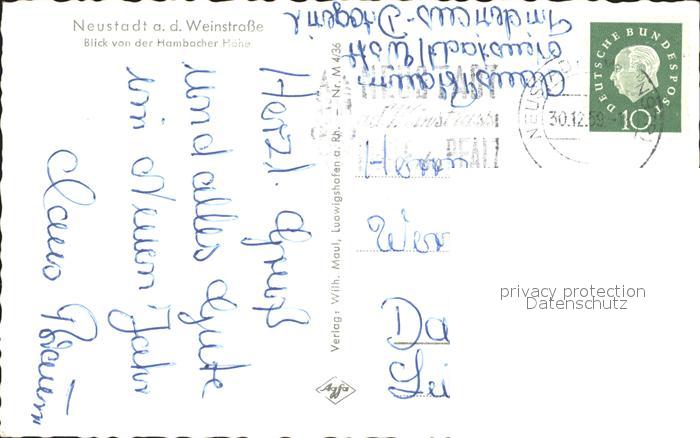 Neustadt a. d. Weinstraße
Blick von der Hambacher Höhe
Herzl. Gruß
und alles Gute
im Neuen Jahr
Claus Braun
Verlag: Wilh. Maul, Ludwigshafen a. Rh. - Nr. M 4/36
Agfa
Claus Braun
Neustadt/Wstr
DEUTSCHE BUNDESPOST
10
30.12.59
Wer
Da
Lei
privacy protection
Datenschutz